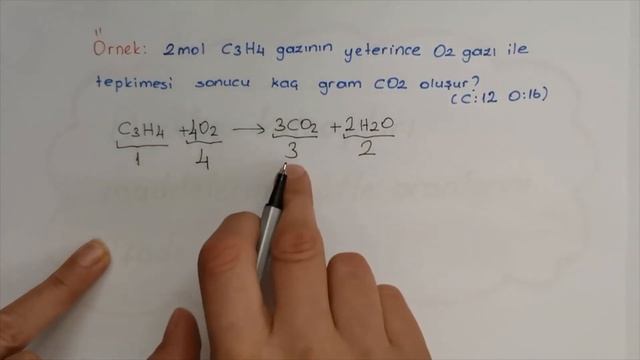 Örnek: 2mol C3H4 gazının yeterince O2 gazı ile
tepkimesi sonucu kaç gram CO2 oluşur?
(C:12 O:16)
C3H4 + 4O2 → 3CO2 + 2H2O
1 4 3 2